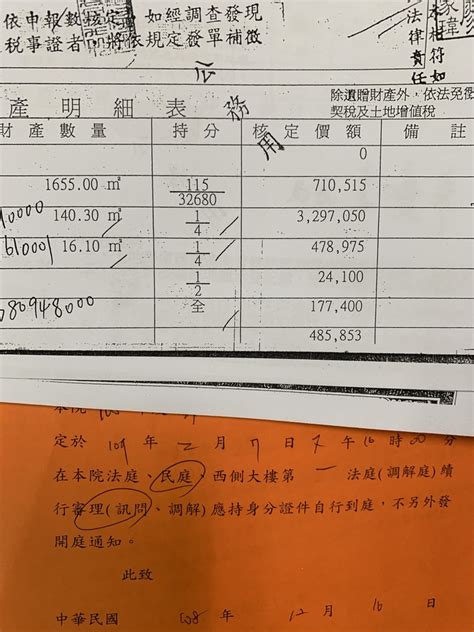 依申報數核定 如經調查發現
稅事證者 將依規定發單補徵
本相符如
法律責任
公務用
產明細表
除遺贈財產外,依法免徵
契稅及土地增值稅
財產數量 持分 核定價額 備註
0
1655.00 ㎡ 115/32680 710,515
0000 140.30 ㎡ 1/4 3,297,050
61000 16.10 ㎡ 1/4 478,975
1/2 24,100
80948000 全 177,400
485,853
本院
定於 109 年 二 月 7 日 午 10 時 00 分
在本院法庭、民庭、西側大樓第 一 法庭(調解庭)續
行審理(訊問、調解)應持身分證件自行到庭,不另外發
開庭通知。
此致
中華民國 108 年 12 月 16 日